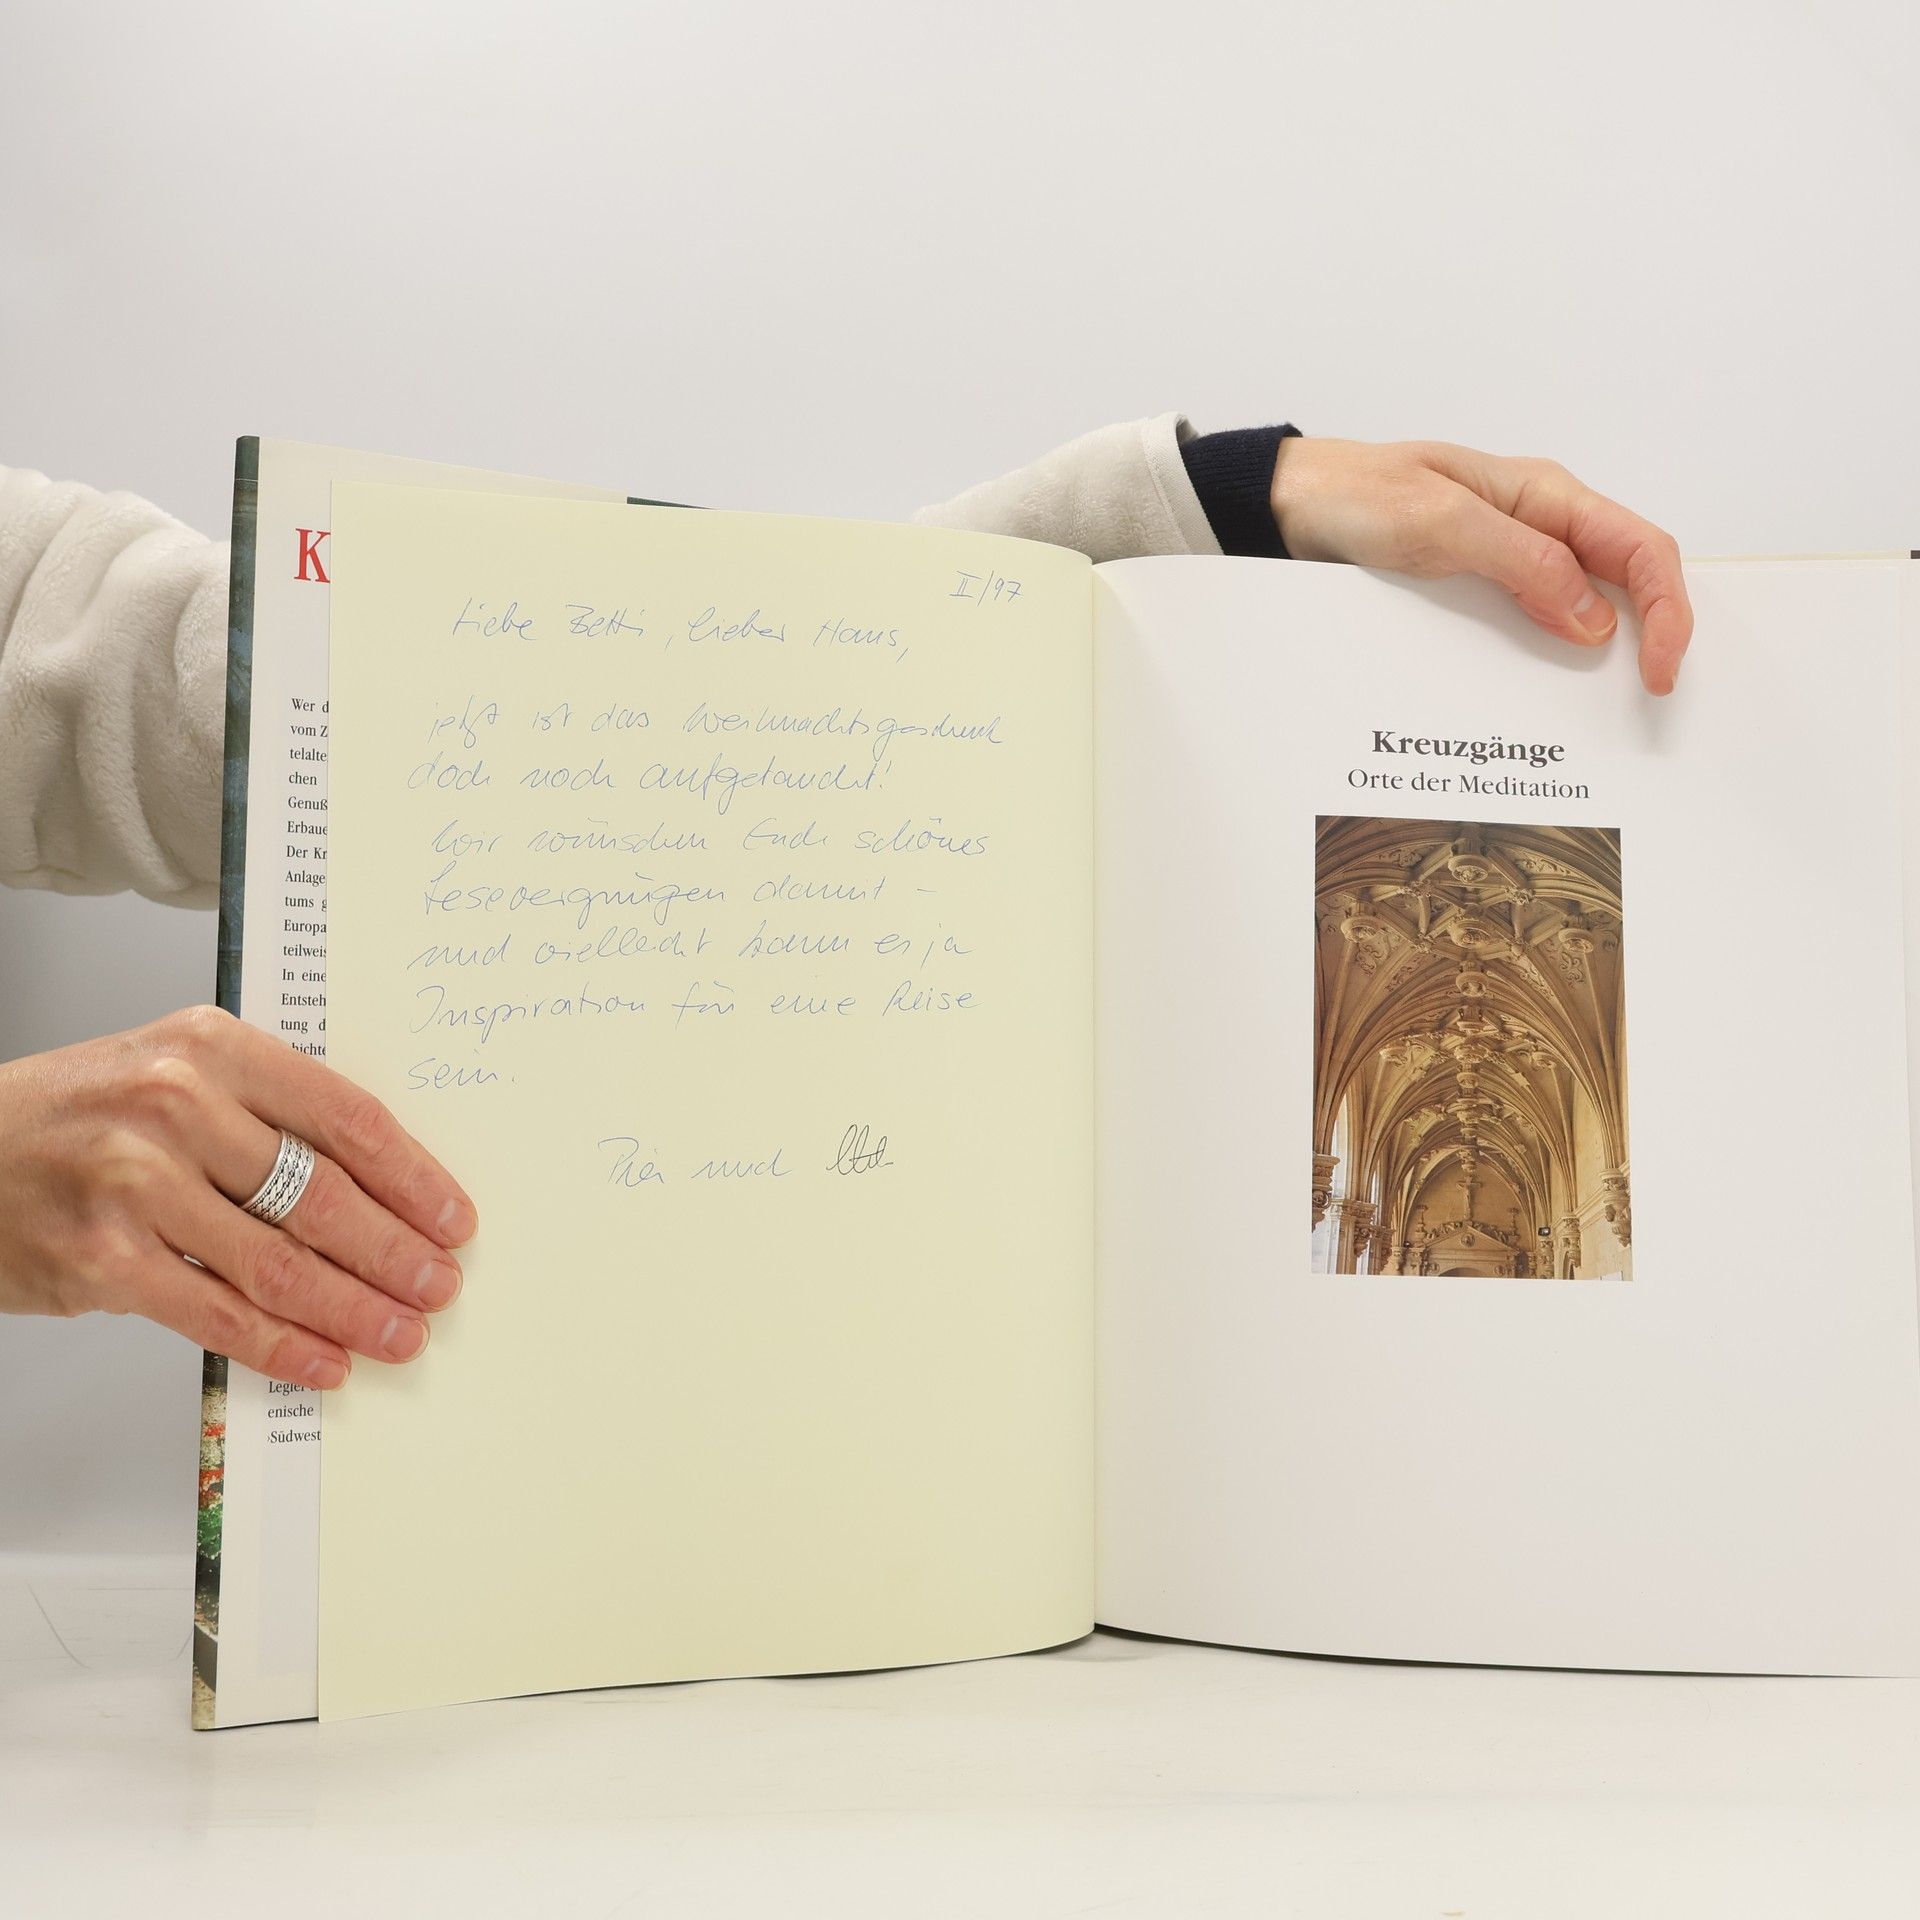 K
Wer d
vom Z
telalte
chen
Genuß
Erbaue
Der Kr
Anlage
tums g
Europa
teilweis
In eine
Entsteh
tung d
chichte
Legler
enische
›Südwest
II/97
Liebe Betti, lieber Hans,
jetzt ist das Weihnachtsgeschenk
doch noch aufgetaucht!
Wir wünschen Euch schönes
Lesevergnügen damit –
und vielleicht kann es ja
Inspiration für eine Reise
sein.
und
Kreuzgänge
Orte der Meditation